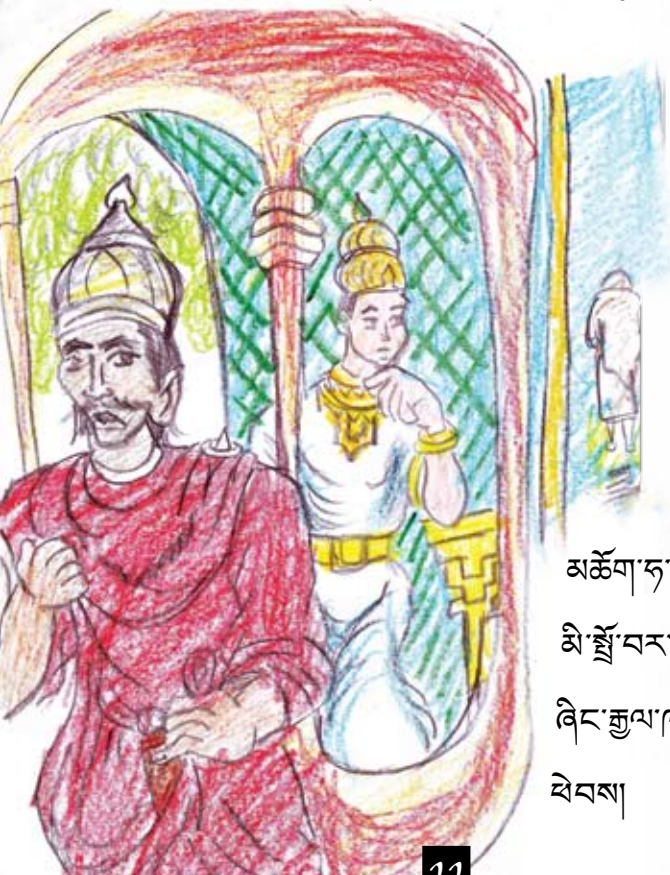 མཆོག་ཏ་
མི་སྤྲོ་བར་
ཞིང་རྒྱལ་
ཕེབས།
11